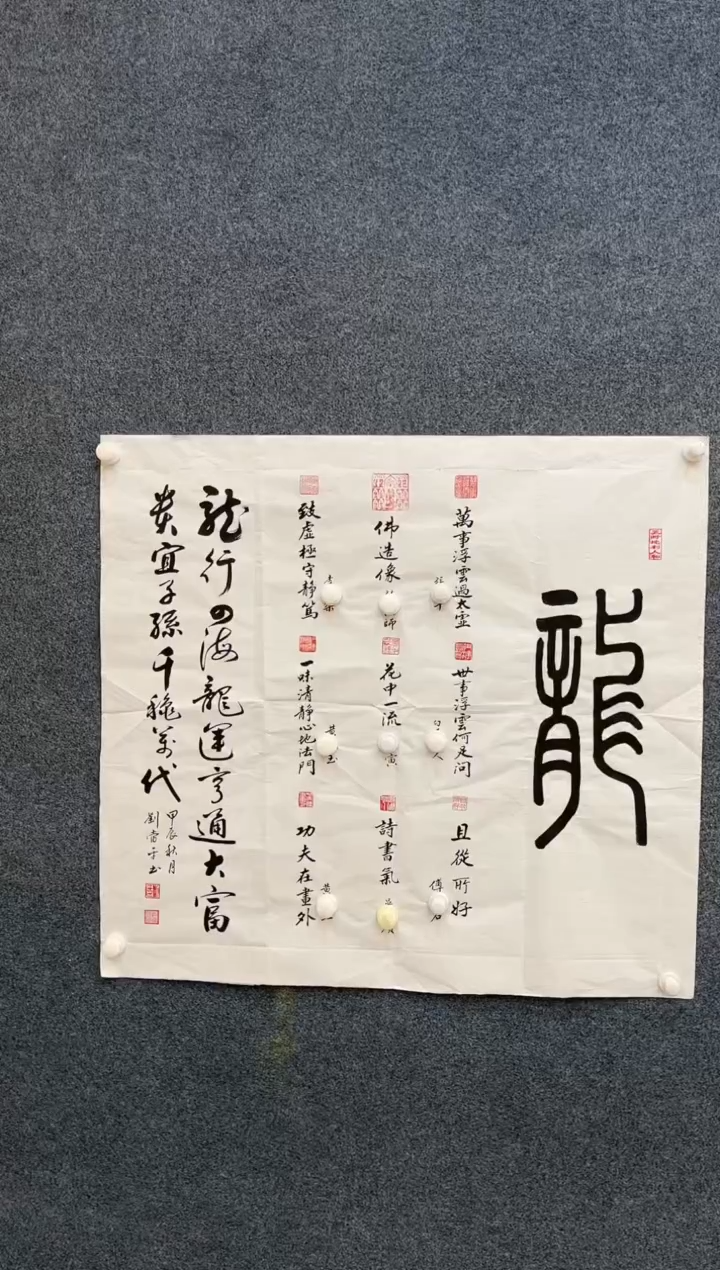 龍
萬事浮雲過太虛
世事浮雲何足问
且從所好
佛造像
師
花中一流
寅
詩書氣
致虛極守静篤
一味清静心地法門
功夫在畫外
龙行四海龍運亨通大富
贵宜子孫千秾萬代
甲辰秋月